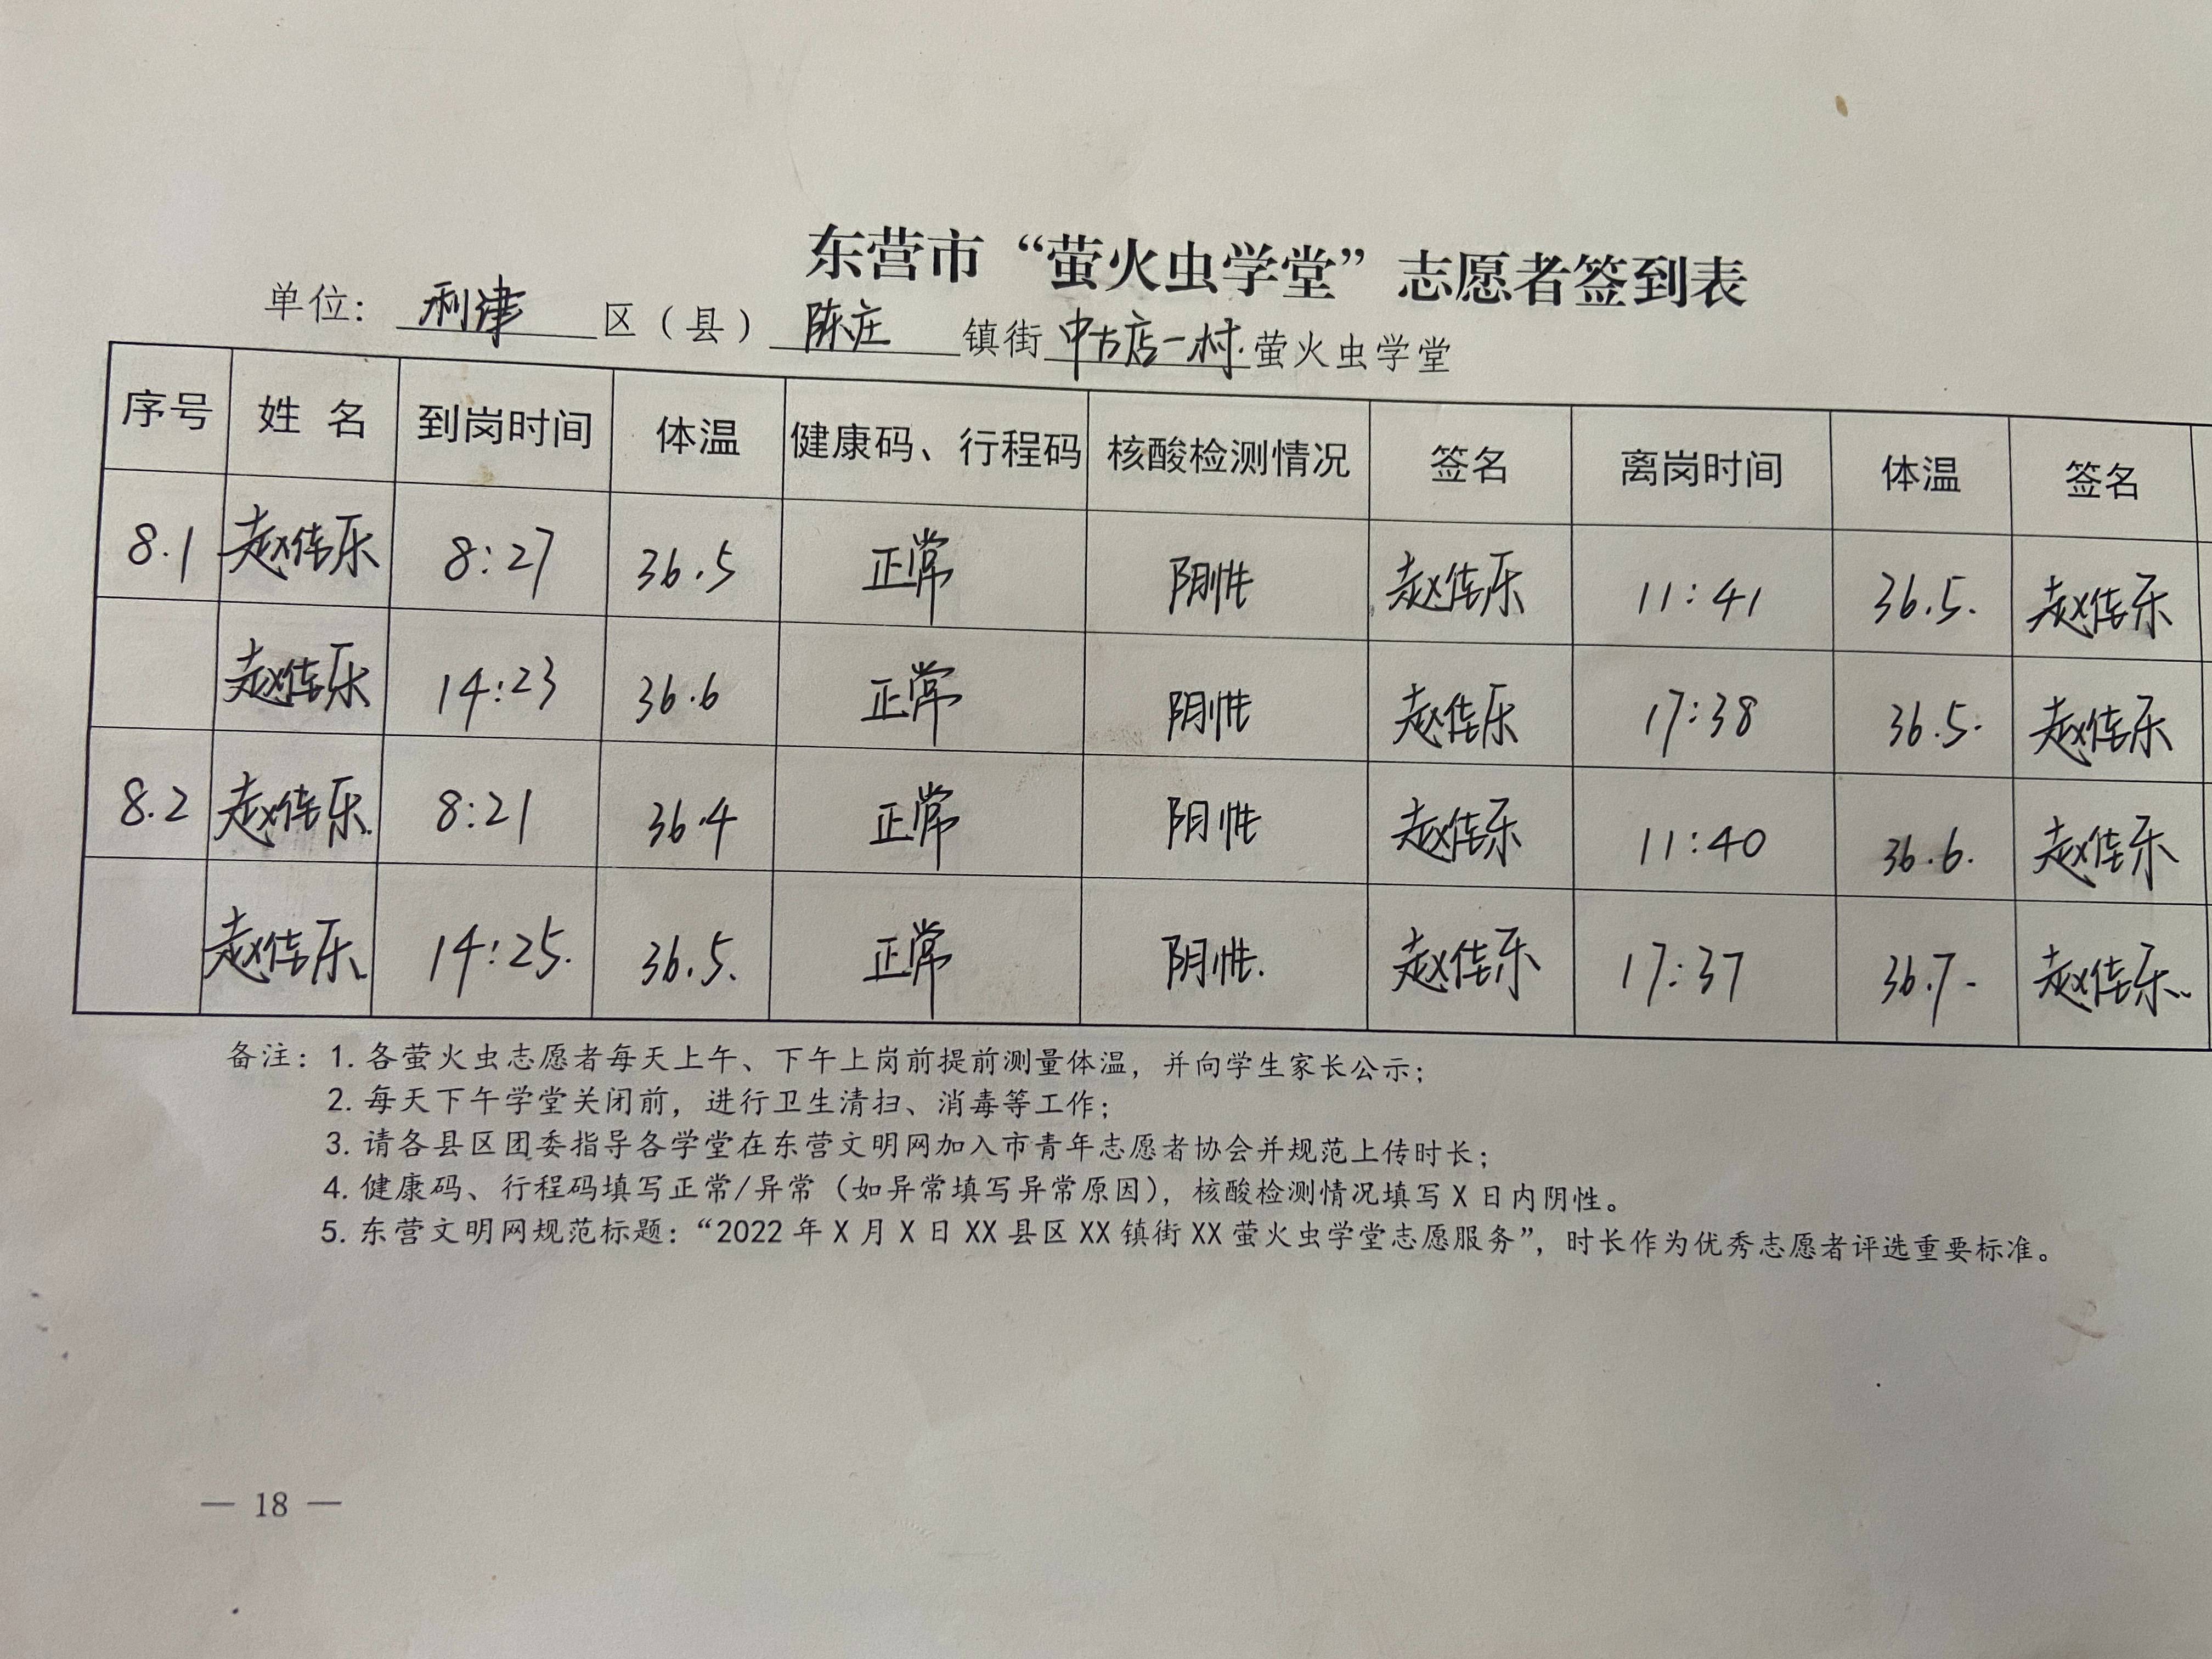 东营市“萤火虫学堂”志愿者签到表
单位：利津区（县）陈庄镇街中古店一村.萤火虫学堂
序号 姓 名 到岗时间 体温 健康码、行程码 核酸检测情况 签名 离岗时间 体温 签名
8.1 赵佳乐 8:27 36.5 正常 阴性 赵佳乐 11:41 36.5. 赵佳乐
赵佳乐 14:23 36.6 正常 阴性 赵佳乐 17:38 36.5. 赵佳乐
8.2 赵佳乐. 8:21 36.4 正常 阴性 赵佳乐 11:40 36.6. 赵佳乐
赵佳乐. 14:25. 36.5. 正常 阴性. 赵佳乐 17:37 36.7. 赵佳乐.
备注：1. 各萤火虫志愿者每天上午、下午上岗前提前测量体温，并向学生家长公示；
2. 每天下午学堂关闭前，进行卫生清扫、消毒等工作；
3. 请各县区团委指导各学堂在东营文明网加入市青年志愿者协会并规范上传时长；
4. 健康码、行程码填写正常/异常（如异常填写异常原因），核酸检测情况填写 X 日内阴性。
5. 东营文明网规范标题：“2022 年 X 月 X 日 XX 县区 XX 镇街 XX 萤火虫学堂志愿服务”，时长作为优秀志愿者评选重要标准。
— 18 —